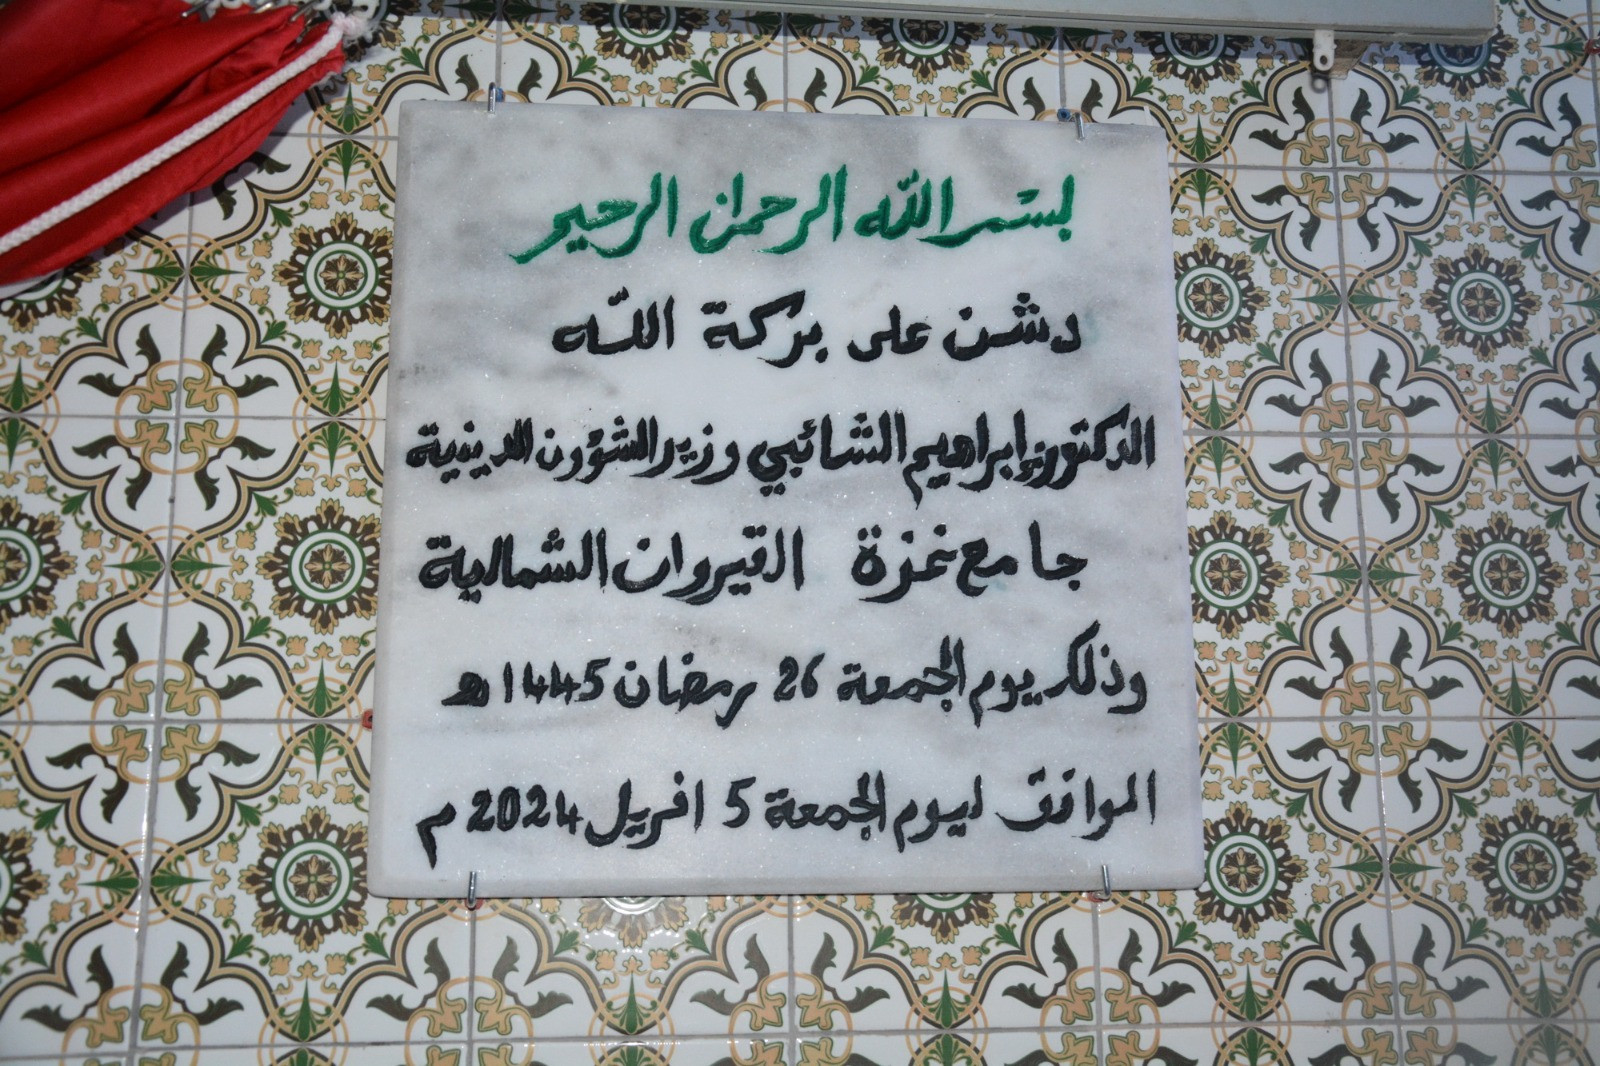 بسم الله الرحمان الرحيم
دشن على بركة الله
الدكتور إبراهيم الشائبي وزير الشؤون الدينية
جامع غزة القيروان الشمالية
وذلك يوم الجمعة 26 رمضان 1445 هـ
الموافق ليوم الجمعة 5 افريل 2024 م